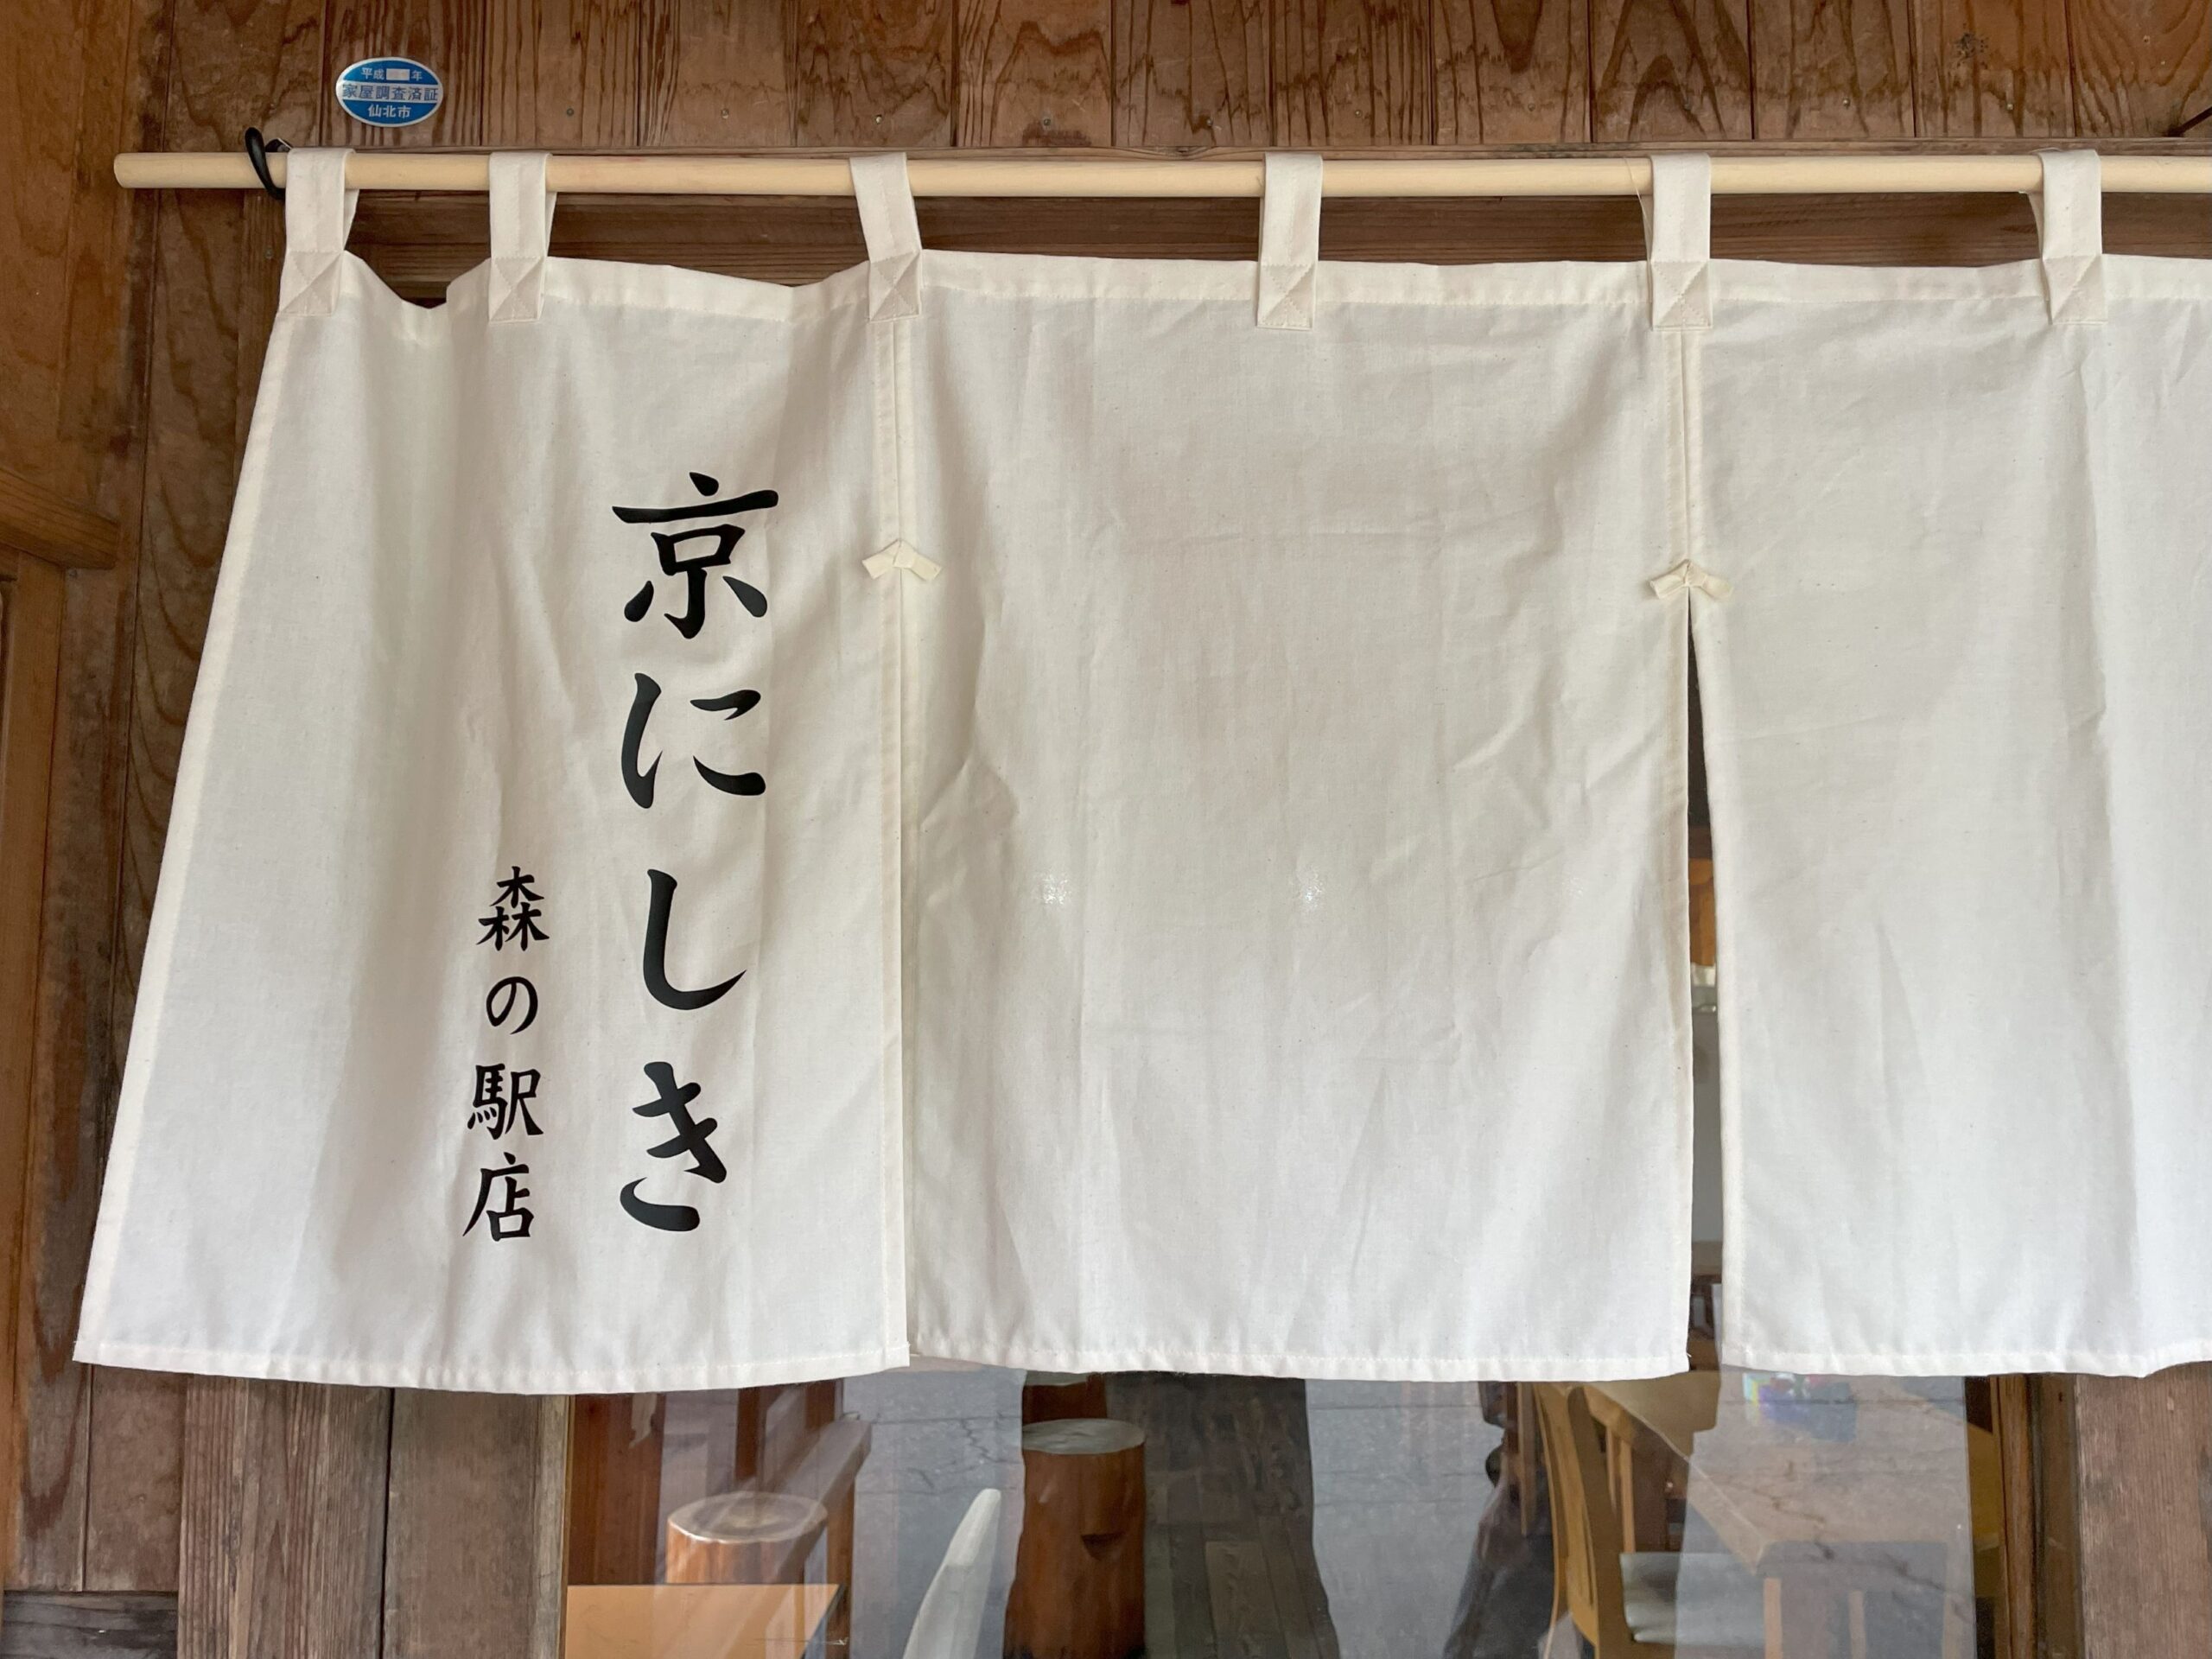 平成 年
家屋調査済証
仙北市
京にしき
森の駅店